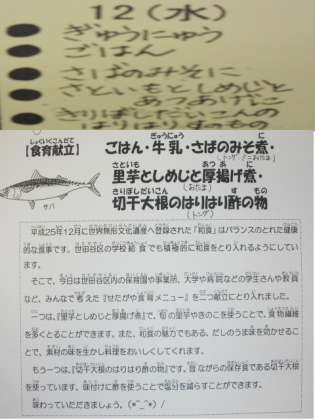 12(水)
● ぎゅうにゅう
● ごはん
● さばのみそに
● さといもとしめじと
あつあげに
● きりぼしだいこんの
はりはりすのもの
【食育献立】
しょくいくこんだて
ごはん・牛乳・さばのみそ煮・
ぎゅうにゅう に
里芋としめじと厚揚げ煮・
さといも あつあ に
(おたま)
切干大根のはりはり酢の物
きりぼしだいこん す もの
(トング)
サバ
平成25年12月に世界無形文化遺産へ登録された「和食」はバランスのとれた健康
的な食事です。世田谷区の学校給食でも積極的に和食をとり入れるようにしてい
ます。
そこで、今日は世田谷区内の保育園や事業所、大学や病院などの学生さんや教員
など、みんなで考えた『せたがや食育メニュー』を二つ献立にとり入れました。
一つは、『里芋としめじと厚揚げ煮』で、旬の里芋やきのこを使うことで、食物繊維
を多くとることができます。また、和食の魅力でもある、だしのうま味を効かせるこ
とで、素材の味を生かし料理をおいしくしてくれます。
もう一つは、『切干大根のはりはり酢の物』です。昔ながらの保存食である切干大根
を使っています。味付けに酢を使うことで塩分を減らすことができます。
味わっていただきましょう。(*^_^*)/